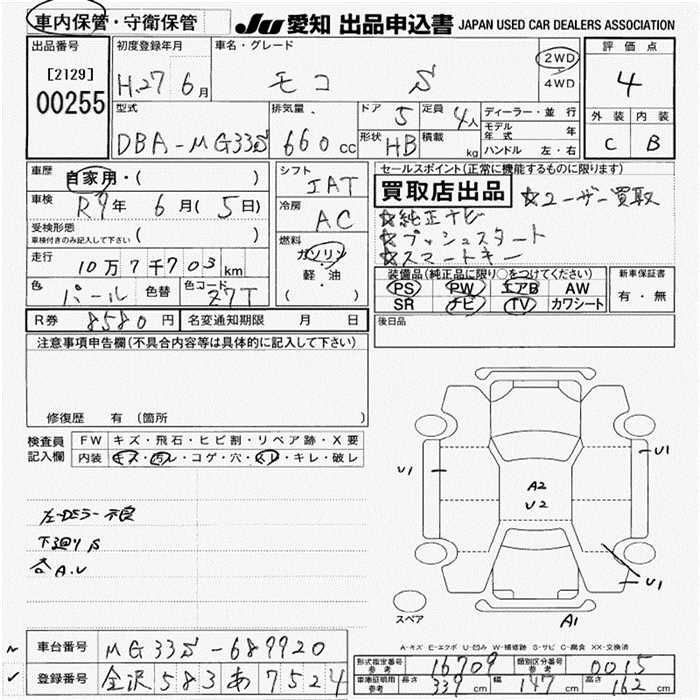 車内保管・守衛保管
JU 愛知 出品申込書 JAPAN USED CAR DEALERS ASSOCIATION
出品番号
[2129]
00255
初度登録年月
H27 6月
車名・グレード
モコ S
2WD
4WD
評価点
4
外装 内装
C B
型式
DBA-MG33S
排気量
660cc
ドア 5
形状 HB
定員 4人
積載 kg
ディーラー・並行
モデル年式 年
ハンドル 左・右
車歴 自家用・( )
車検 R9年 6月(5日)
受検形態
車検付きのみ記入して下さい ( )
走行 10万7千703km
色 パール 色替 色コード Z7T
シフト IAT
冷房 AC
燃料
ガソリン
軽・油
( )
セールスポイント(正常に機能するものに限ります)
買取店出品 ☆ユーザー買取
☆純正ナビ
☆プッシュスタート
☆スマートキー
装備品(純正品に限り○をつけてください)
PS PW エアB AW
SR ナビ TV カワシート
新車保証書
有・無
R券 8580円 名変通知期限 月 日
後日品
注意事項申告欄(不具合内容等は具体的に記入して下さい)
修復歴 有 (箇所 )
検査員記入欄
FW キズ・飛石・ヒビ割・リペア跡・X要
内装 キズ・汚レ・コゲ・穴・スレ・キレ・破レ
左-Dミラー不良
下廻りS
各A.U
U1
U1
A2
U2
U1
A1
スペア
A-キズ E-エクボ U-凹み W-補修跡 S-サビ C-腐食 XX-交換済
車台番号 MG33S-689920
登録番号 金沢583あ7524
形式指定番号 参考 16709 類別区分番号 参考 0015
車庫証明用 参考 長さ 339cm 幅 147cm 高さ 162cm